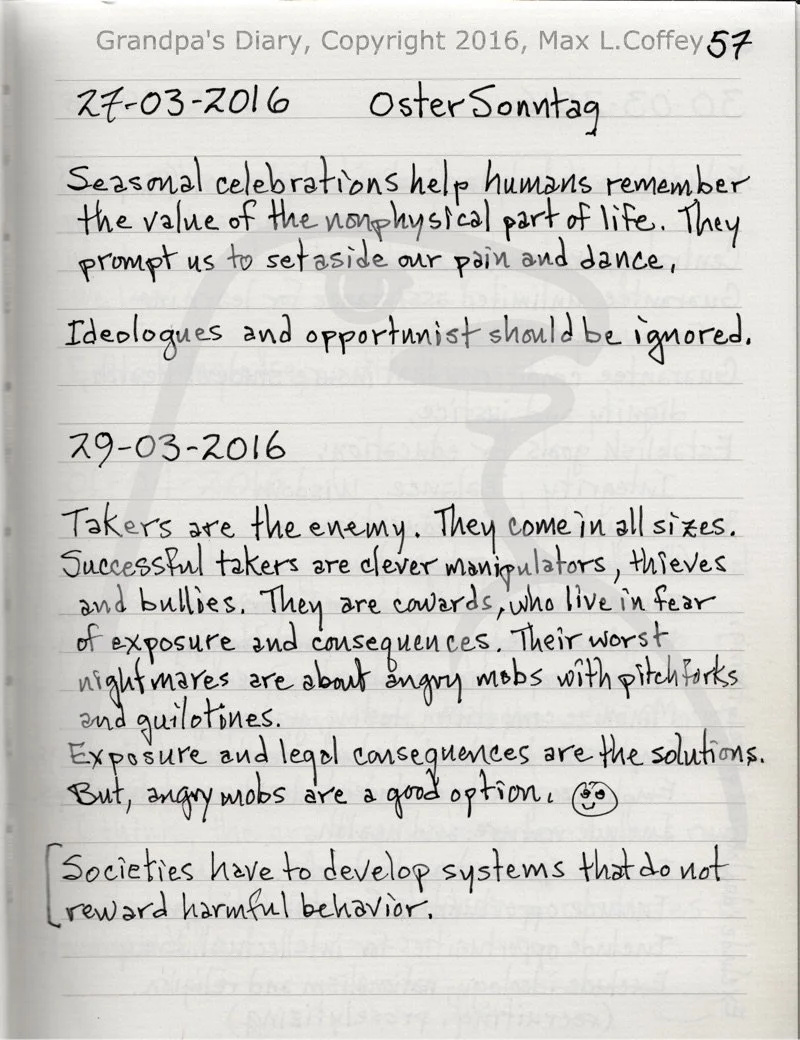 Grandpa's Diary, Copyright 2016, Max L.Coffey 57
27-03-2016 OsterSonntag
Seasonal celebrations help humans remember
the value of the nonphysical part of life. They
prompt us to set aside our pain and dance.
Ideologues and opportunist should be ignored.
29-03-2016
Takers are the enemy. They come in all sizes.
Successful takers are clever manipulators, thieves
and bullies. They are cowards, who live in fear
of exposure and consequences. Their worst
nightmares are about angry mobs with pitchforks
and guilotines.
Exposure and legal consequences are the solutions.
But, angry mobs are a good option.
Societies have to develop systems that do not
reward harmful behavior.